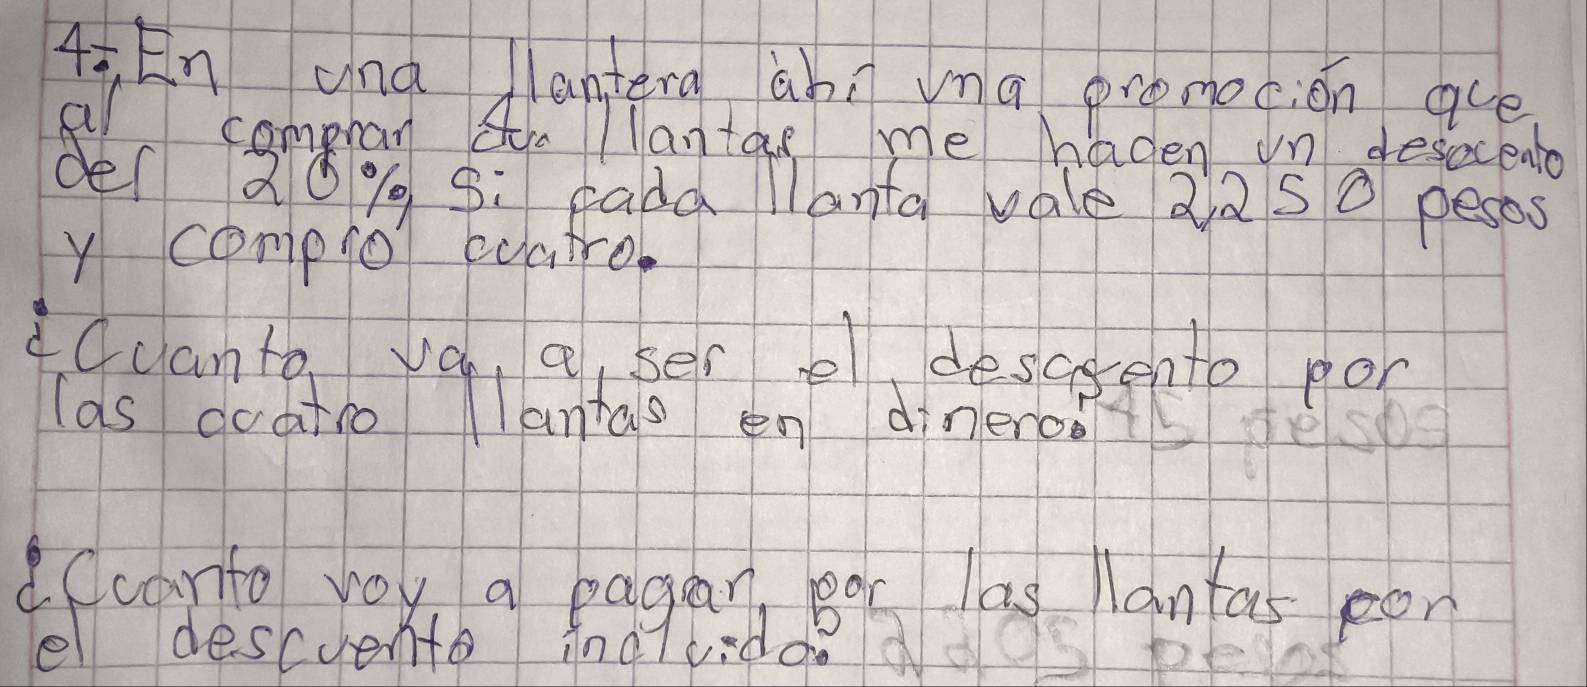 4.- En una llantera ahi una promoción que
al comprar llantas me hacen un descento
del 20% si cada llanta vale 2,250 pesos
y compro cuatro.
¿Cuanto va a ser el descuento por
las cuatro llantas en dinero? 45 pesos
¿Cuanto voy a pagar por las llantas con
el descuento incluido? 2205 pesos